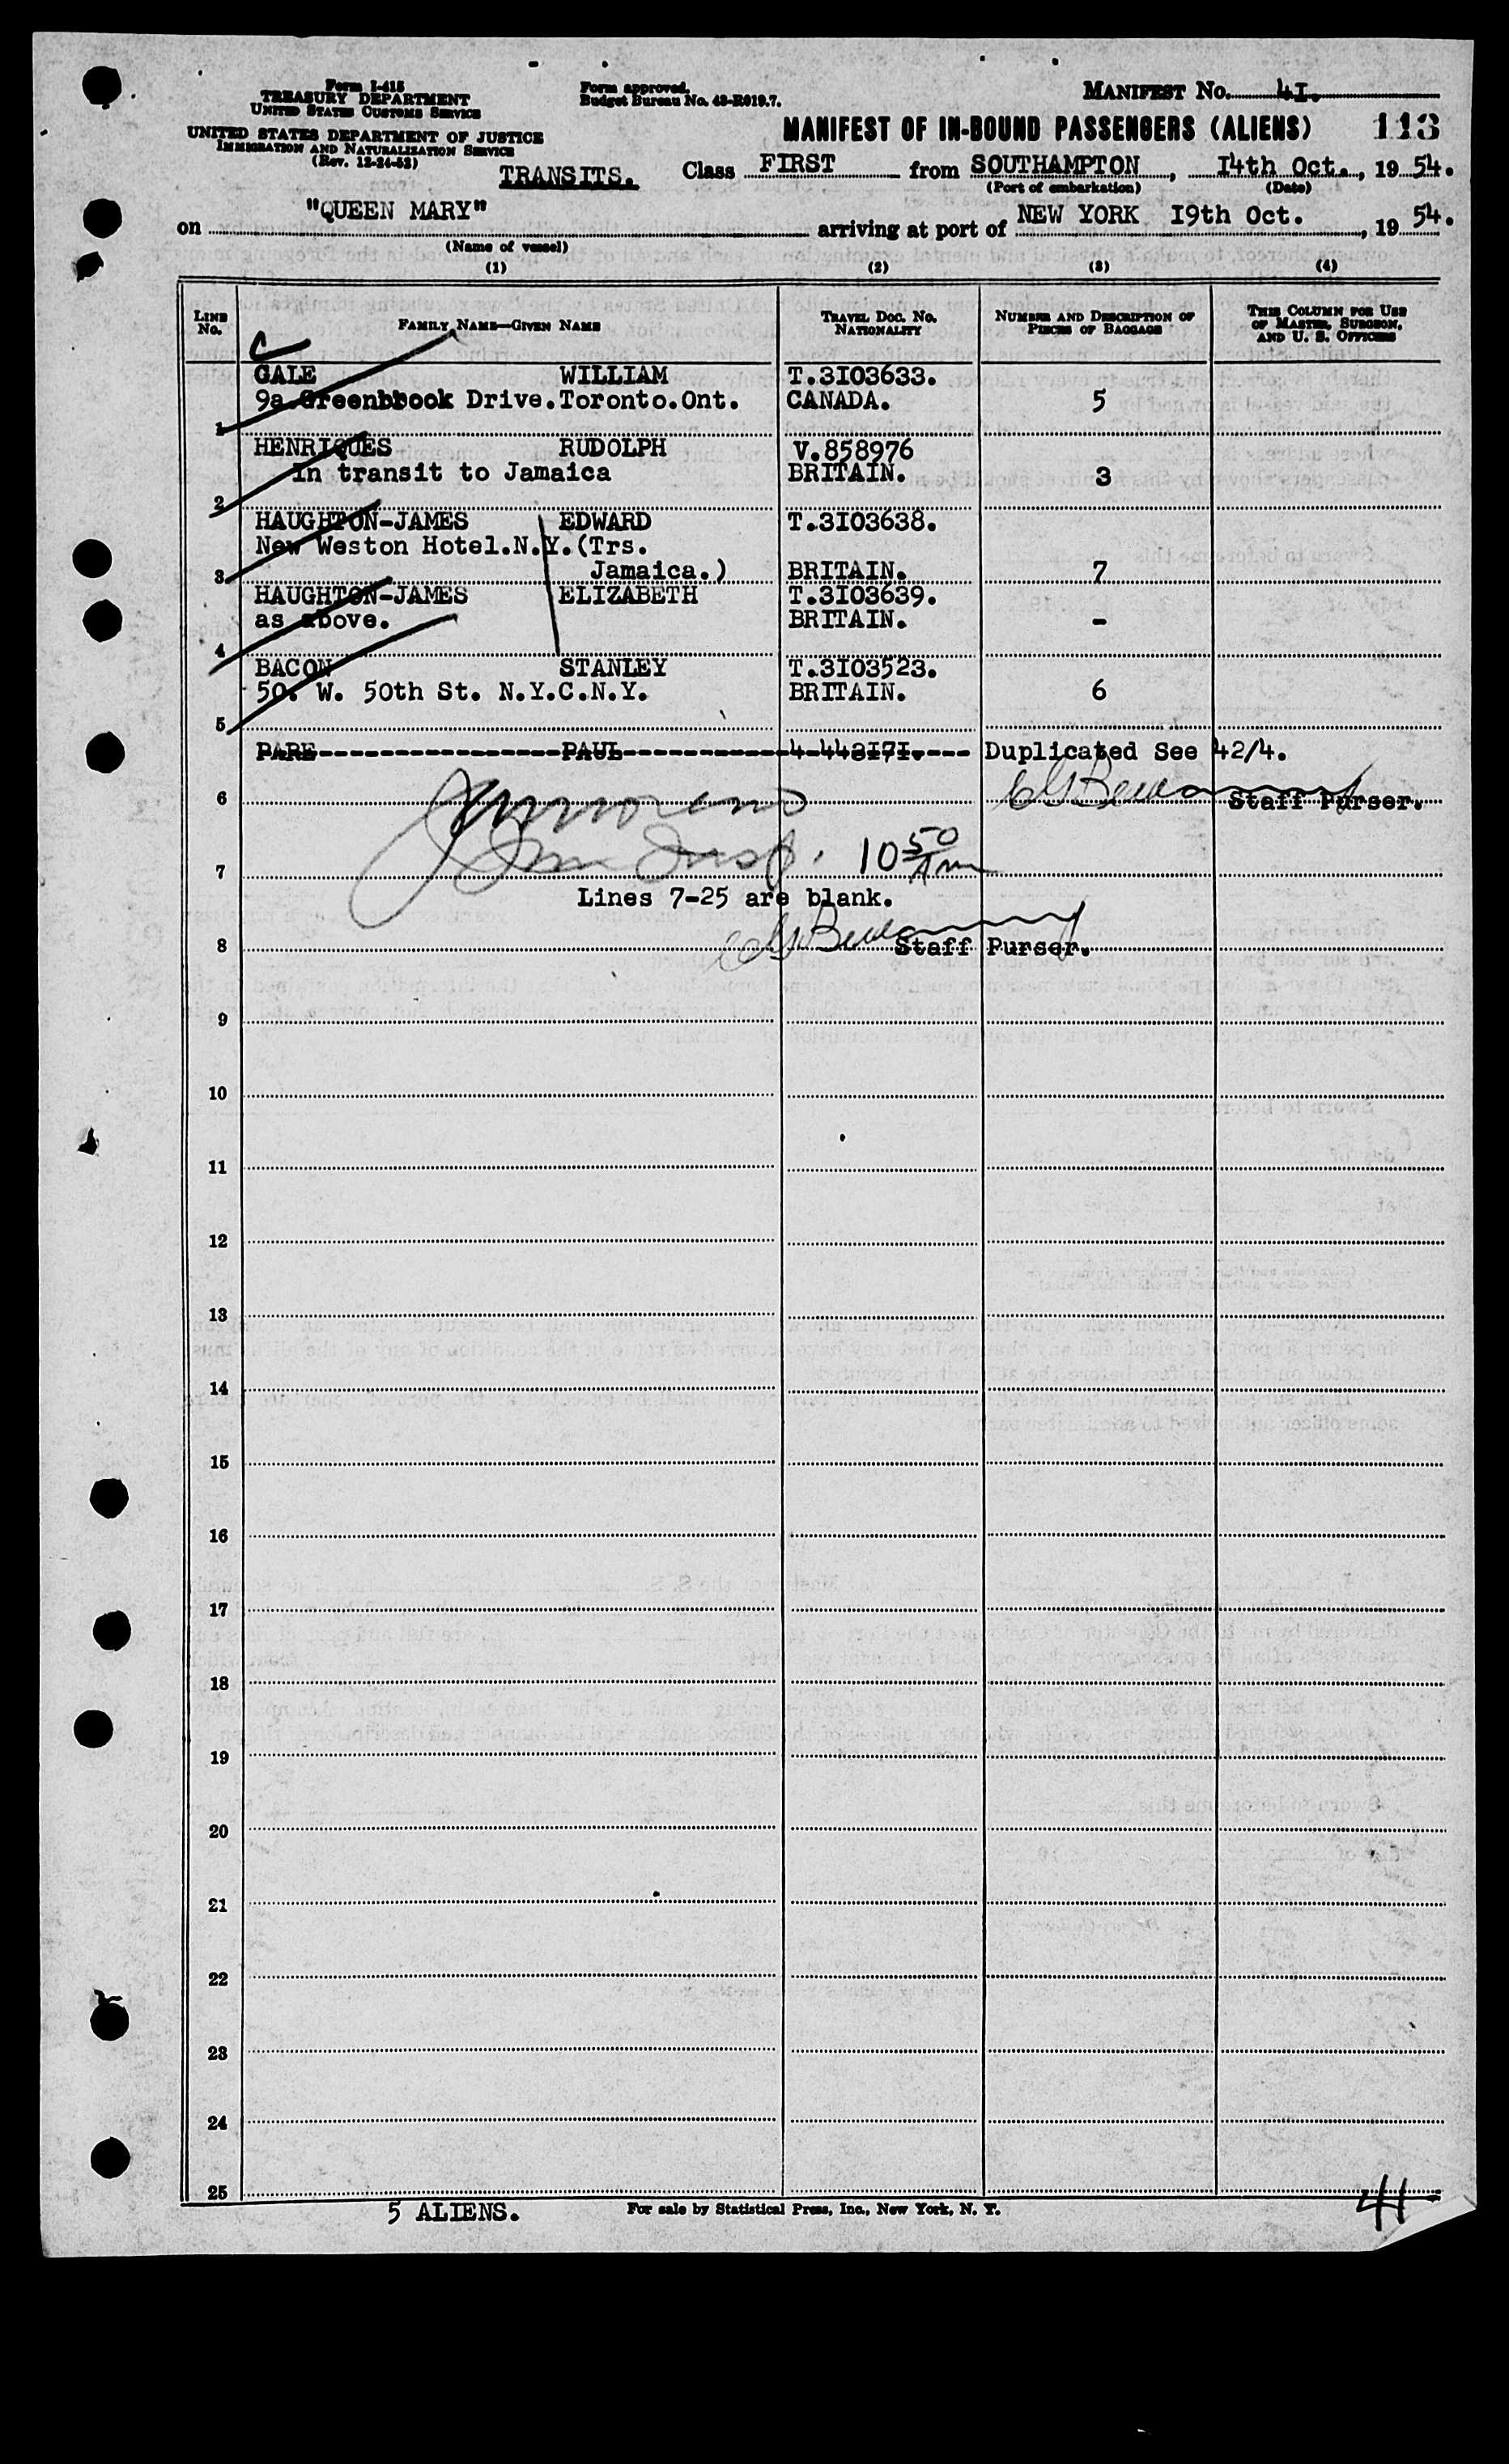 Form I-415
TREASURY DEPARTMENT
UNITED STATES CUSTOMS SERVICE
UNITED STATES DEPARTMENT OF JUSTICE
IMMIGRATION AND NATURALIZATION SERVICE
(Rev. 12-24-52)
Form approved.
Budget Bureau No. 43-R019.7.
MANIFEST No. 4I.
MANIFEST OF IN-BOUND PASSENGERS (ALIENS) 113
TRANSITS. Class FIRST from SOUTHAMPTON, I4th Oct., 19 54.
(Port of embarkation) (Date)
on "QUEEN MARY" arriving at port of NEW YORK I9th Oct., 19 54.
(Name of vessel)
(1) (2) (3) (4)
LINE No. FAMILY NAME—GIVEN NAME TRAVEL DOC. NO. NATIONALITY NUMBER AND DESCRIPTION OF PIECES OF BAGGAGE THIS COLUMN FOR USE OF MASTER, SURGEON, AND U. S. OFFICERS
GALE WILLIAM T.3I03633.
9a.Greenbbook Drive.Toronto.Ont. CANADA. 5
1
HENRIQUES RUDOLPH V.858976
In transit to Jamaica BRITAIN. 3
2
HAUGHTON-JAMES EDWARD T.3I03638.
New Weston Hotel.N.Y.(Trs.
3 Jamaica.) BRITAIN. 7
HAUGHTON-JAMES ELIZABETH T.3I03639.
as above. BRITAIN. -
4
BACON STANLEY T.3I03523.
50. W. 50th St. N.Y.C.N.Y. BRITAIN. 6
5
PARE PAUL 4-443I7I. Duplicated See 42/4.
6 Staff Purser.
7 10 50 Am
Lines 7-25 are blank.
8 Staff Purser.
9
10
11
12
13
14
15
16
17
18
19
20
21
22
23
24
25
5 ALIENS. For sale by Statistical Press, Inc., New York, N. Y. 41